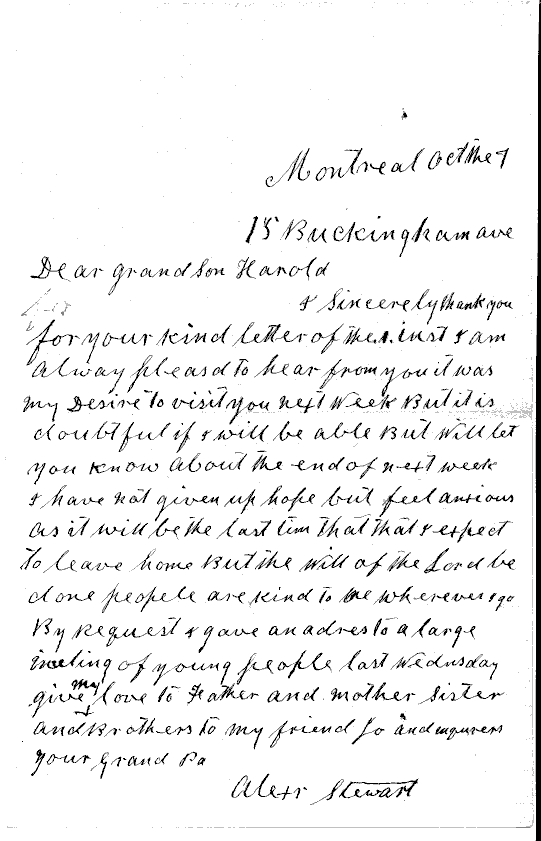 Montreal Oct the 7
15 Buckingham ave
Dear grandson Harold
I Sincerely thank you
for your kind letter of the 1. inst I am
alway pleasd to hear from you it was
my Desire to visit you next week But it is
doubtful if I will be able But will let
you know about the end of next week
I have not given up hope but feel anxious
as it will be the last tim that that I expect
to leave home But the will of the Lord be
done peopele are kind to me wherever I go
By Request I gave an adres to a large
meeting of young people last Wednusday
give my love to Father and mother Sister
and Brothers to my friend Jo and
your Grand Pa
Alexr Stewart